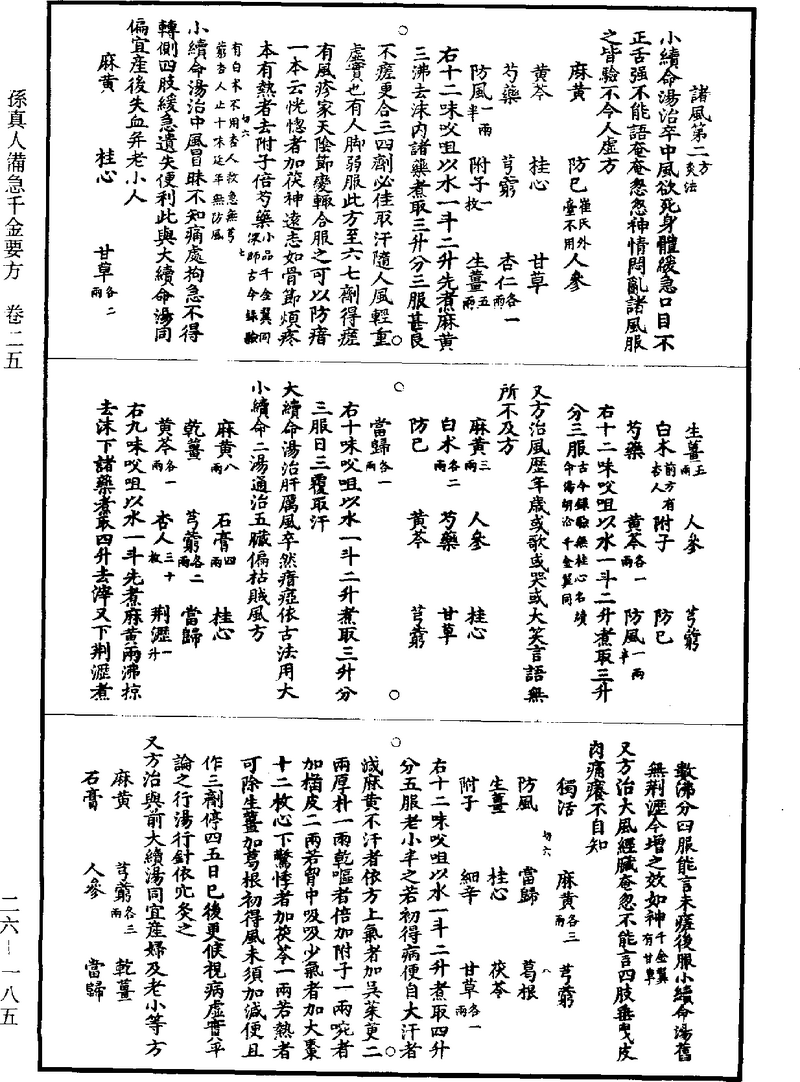 孫真人備急千金要方　卷二五
二六—一八五
諸風第二方灸法
小續命湯治卒中風欲死身體緩急口目不
正舌强不能語奄奄忽忽神情悶亂諸風服
之皆驗不令人虛方
麻黄　防已崔氏外臺不用　人參
黄芩　桂心　甘草
芍藥　芎藭　杏仁各一兩
防風一兩半　附子一枚　生薑五兩
右十二味㕮咀以水一斗二升先煮麻黄
三沸去沫内諸藥煮取三升分三服甚良
不瘥更合三四劑必佳取汗隨人風輕重
虛實也有人脚弱服此方至六七劑得瘥
有風疹家天陰節變輒合服之可以防瘖
一本云恍惚者加茯神遠志如骨節煩疼
本有熱者去附子倍芍藥小品千金翼同深師古今錄驗
有白术不用杏人救急無芎藭杏人止十味延年無防風
小續命湯治中風冒昧不知痛處拘急不得
轉側四肢緩急遺失便利此與大續命湯同
偏宜産後失血并老小人
麻黄　桂心　甘草各二兩
生薑五兩　人參　芎藭
白术前方有杏人　附子　防已
芍藥　黄芩各一兩　防風一兩半
右十二味㕮咀以水一斗二升煮取三升
分三服古今錄驗無桂心名續命湯胡洽千金翼同
又方治風歷年歲或歌或哭或大笑言語無
所不及方
麻黄三兩　人參　桂心
白术各二兩　芍藥　甘草
防已　黄芩　芎藭
當歸各一兩
右十味㕮咀以水一斗二升煮取三升分
三服日三覆取汗
大續命湯治肝厲風卒然瘖瘂依古法用大
小續命二湯通治五臟偏枯賊風方
麻黄八兩　石膏四兩　桂心
乾薑　芎藭各二兩　當歸
黄芩各一兩　杏人三十枚　荆瀝一升
右九味㕮咀以水一斗先煮麻黄兩沸掠
去沫下諸藥煮取四升去滓又下荆瀝煮
數沸分四服能言未瘥後服小續命湯舊
無荆瀝今增之效如神千金翼有甘草
又方治大風經臟奄忽不能言四肢垂曳皮
肉痛癢不自知
獨活　麻黄各三兩　芎藭
防風　當歸　葛根
生薑　桂心　茯苓
附子　細辛　甘草各一兩
右十二味㕮咀以水一斗二升煮取四升
分五服老小半之若初得病便自大汗者
減麻黄不汗者依方上氣者加吳茱萸二
兩厚朴一兩乾嘔者倍加附子一兩啘者
加橘皮二兩若胷中吸吸少氣者加大棗
十二枚心下驚悸者加茯苓一兩若熱者
可除生薑加葛根初得風未須加減便且
作三劑停四五日已後更候視病虛實平
論之行湯行針依穴灸之
又方治與前大續湯同宜産婦及老小等方
麻黄　芎藭各三兩　乾薑
石膏　人參　當歸